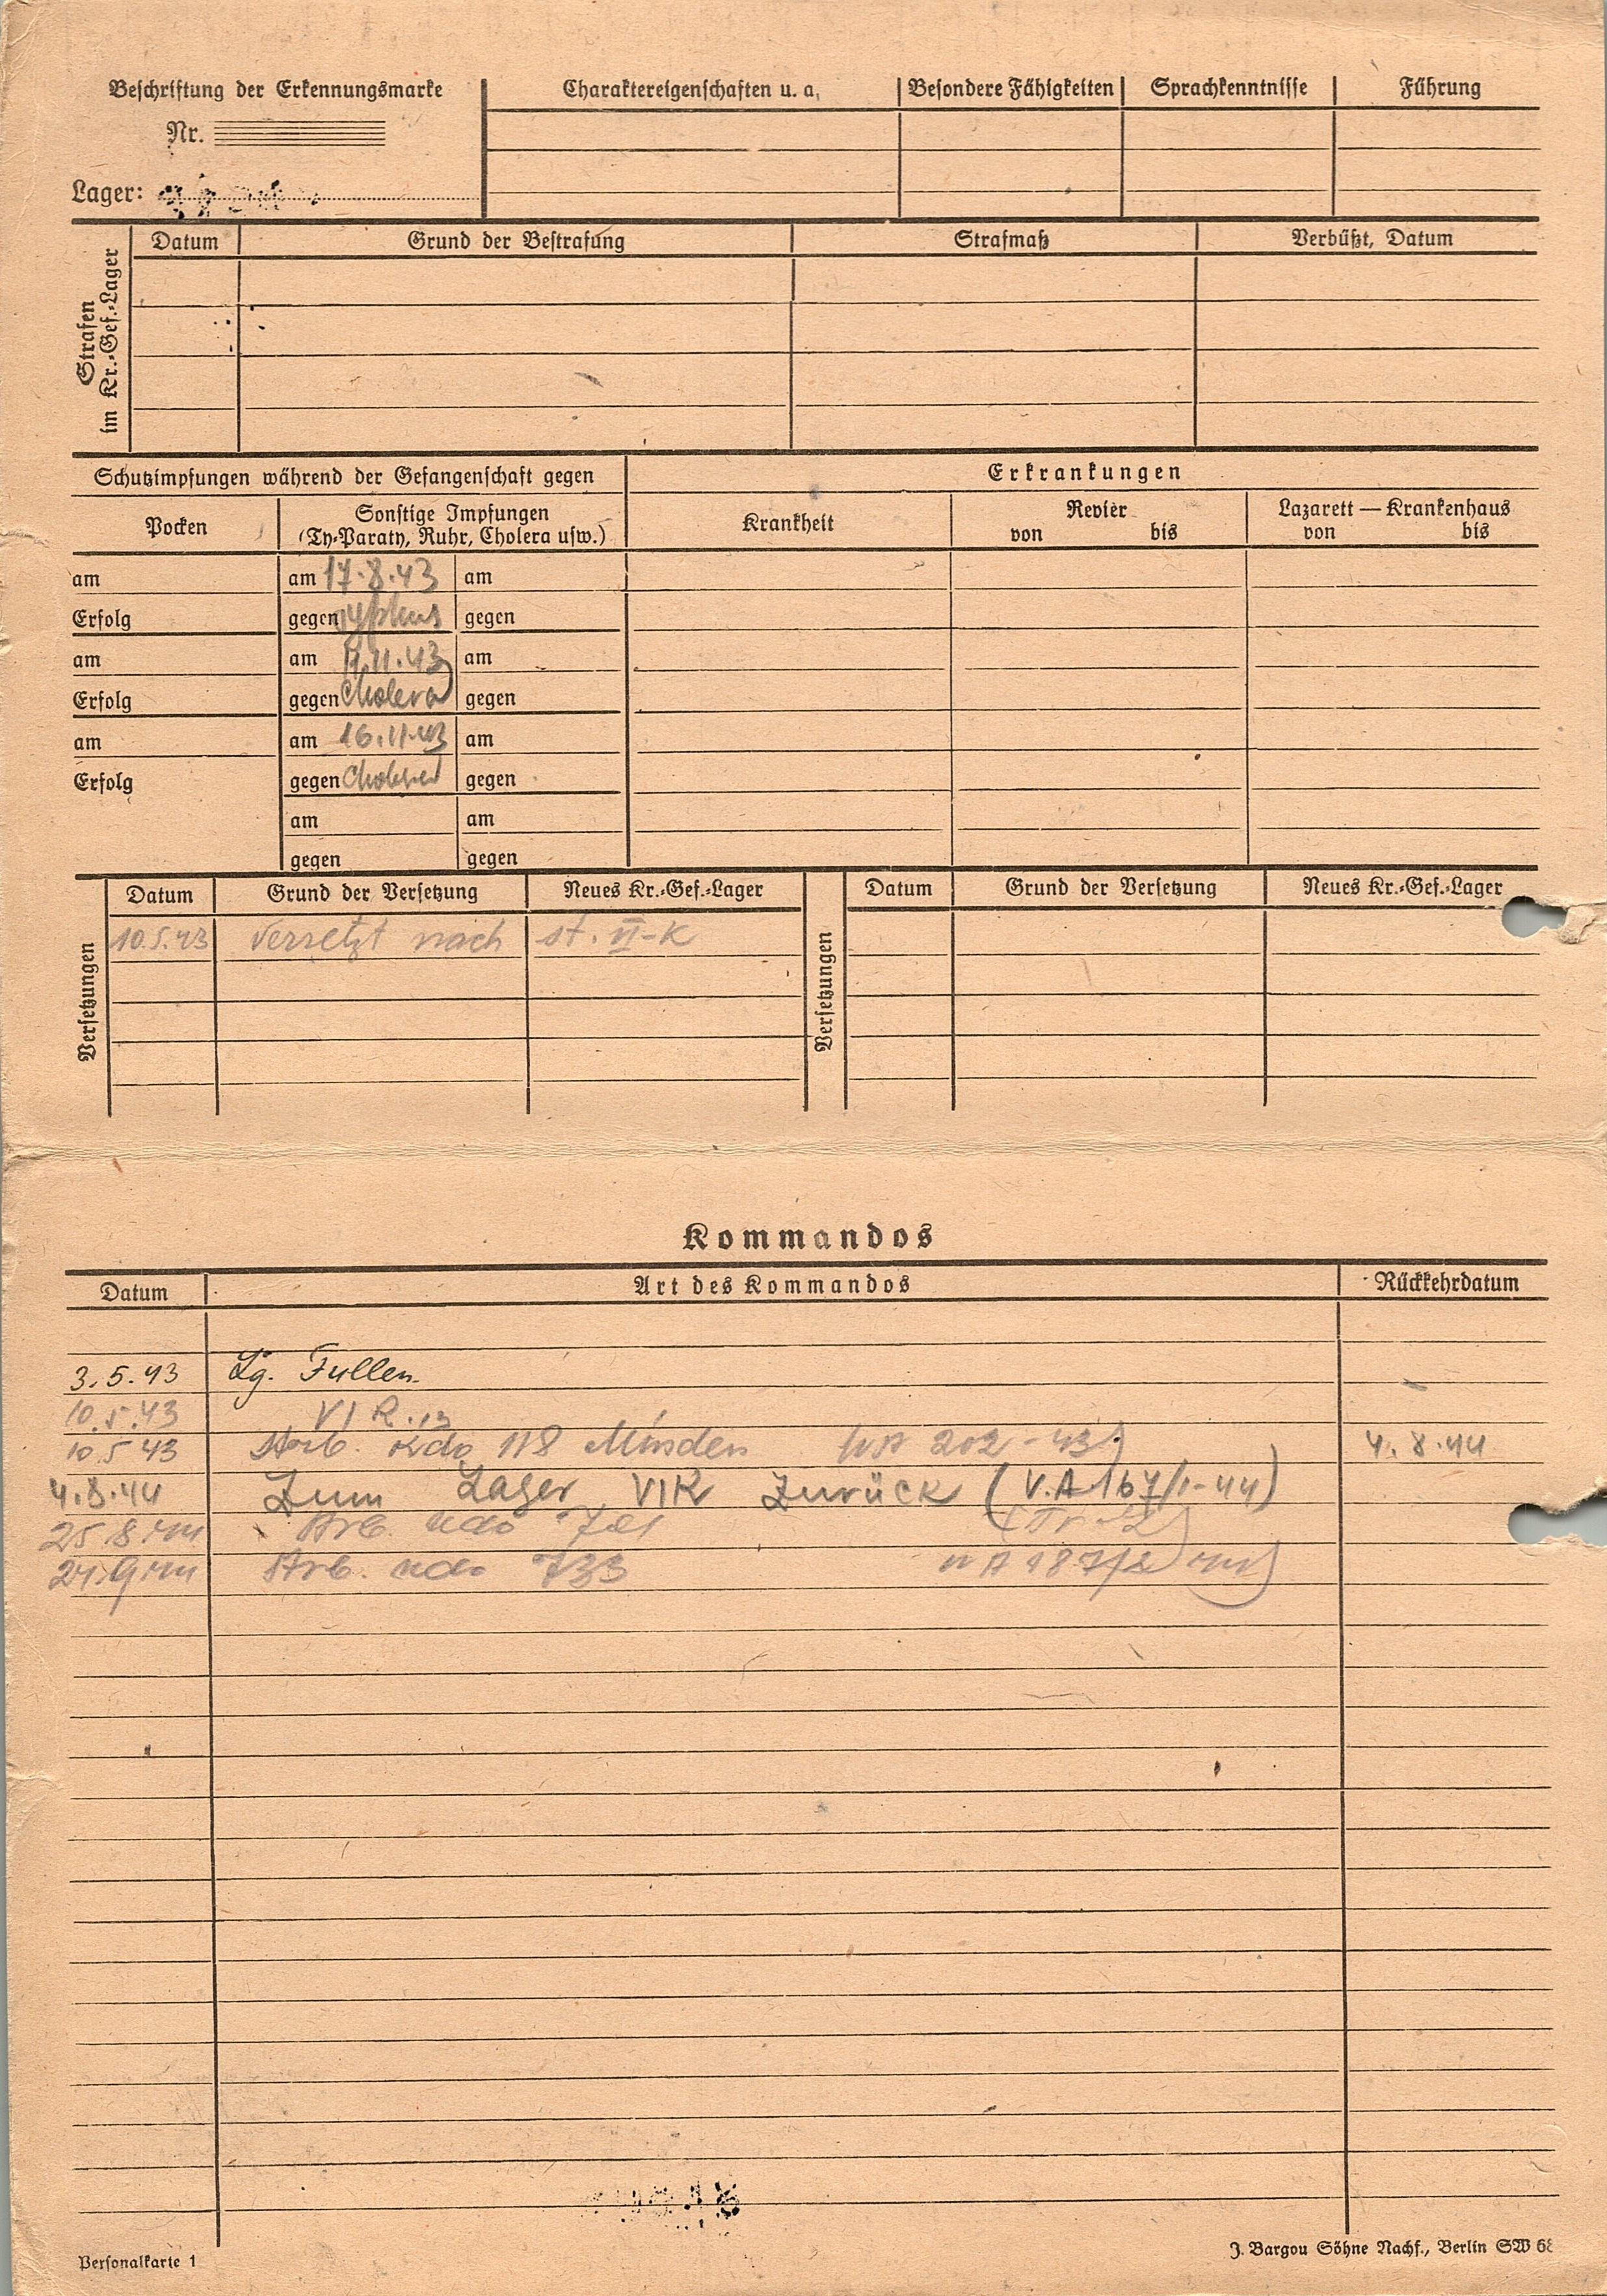 Beschriftung der Erkennungsmarke
Nr.
Lager:
Charaktereigenschaften u. a.
Besondere Fähigkeiten
Sprachkenntnisse
Führung
Strafen im Kr.-Gef.-Lager
Datum
Grund der Bestrafung
Strafmaß
Verbüßt, Datum
Schutzimpfungen während der Gefangenschaft gegen
Erkrankungen
Pocken
Sonstige Impfungen
(Ty-Paraty, Ruhr, Cholera usw.)
Krankheit
Revier
von bis
Lazarett — Krankenhaus
von bis
am am 17.8.43 am
Erfolg gegen Typhus gegen
am am 11.43 am
Erfolg gegen Cholera gegen
am am 16.11.43 am
Erfolg gegen Cholera gegen
am am
gegen gegen
Versetzungen
Datum Grund der Versetzung Neues Kr.-Gef.-Lager
10.5.43 versetzt nach st. VI-K
Versetzungen
Datum Grund der Versetzung Neues Kr.-Gef.-Lager
Kommandos
Datum Art des Kommandos Rückkehrdatum
3.5.43 Lg. Fullen.
10.5.43 VI K
10.5.43 Arb. Kdo 118 Minden 202-43) 4.8.44
4.8.44 Zum Lager VIK zurück (V.A 167/1-44)
25.8.44 Arb. Kdo
21.9.44 Arb. Kdo 733
Personalkarte 1
J. Bargou Söhne Nachf., Berlin SW 68